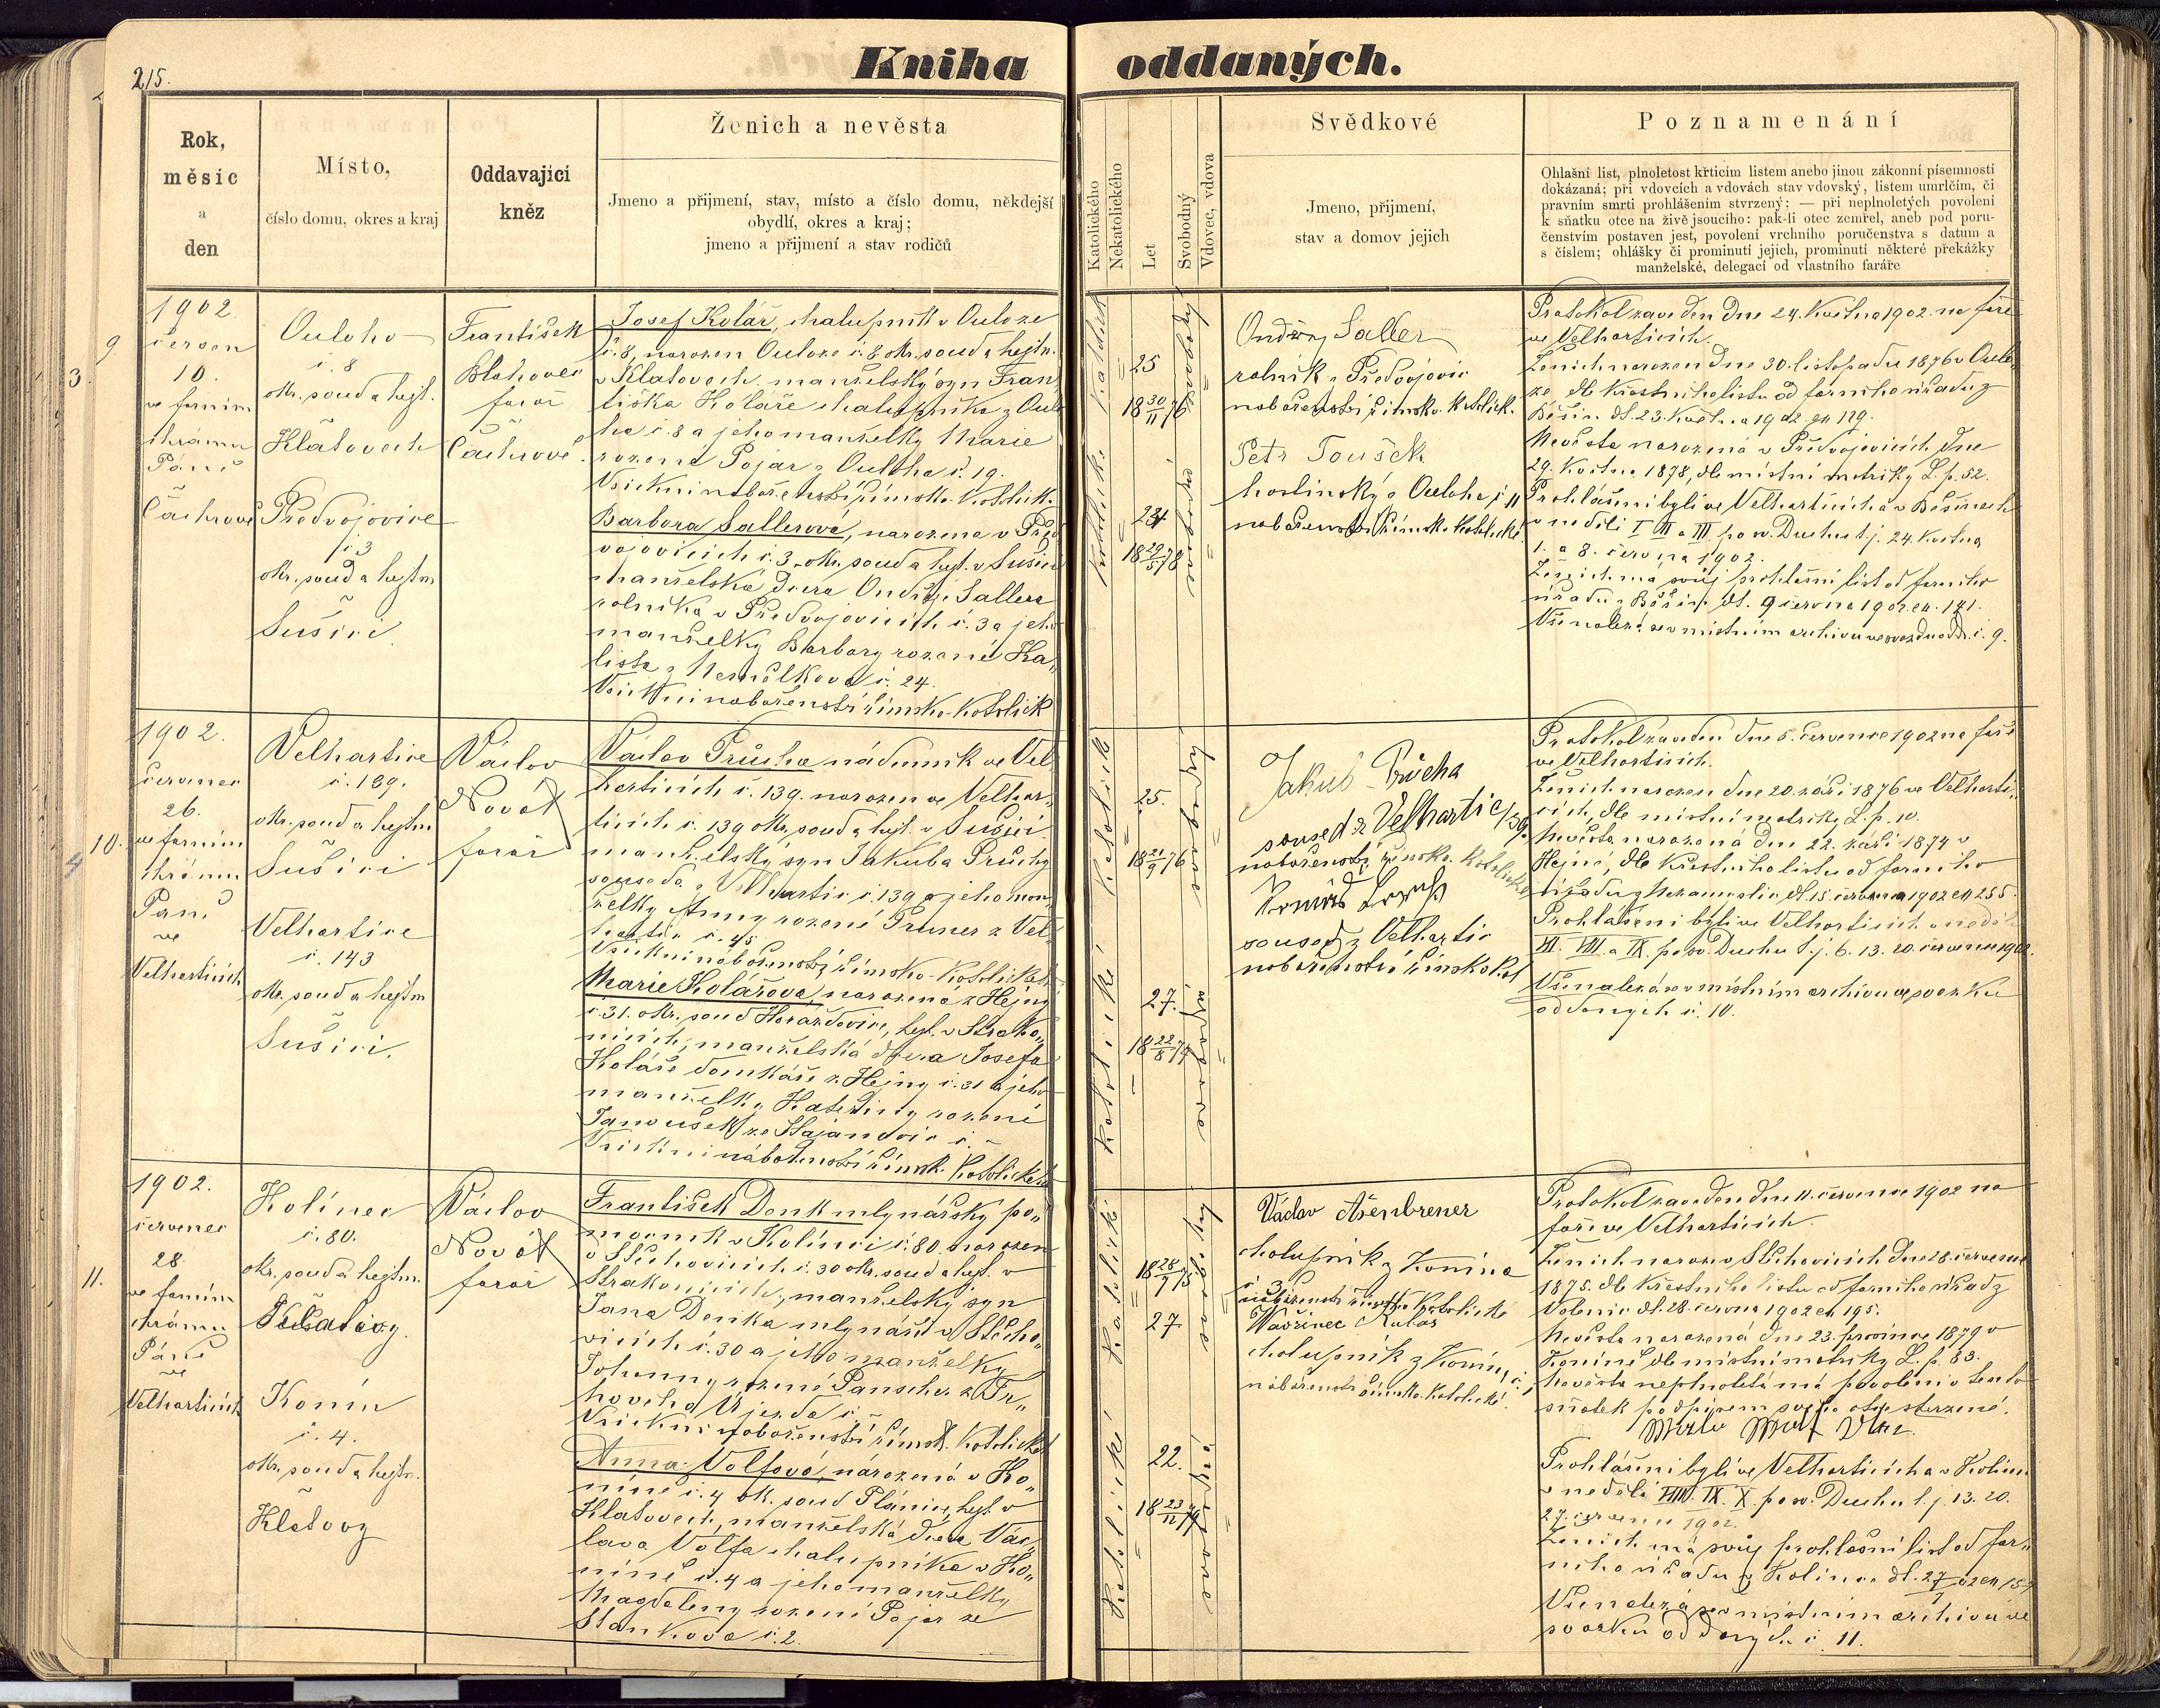 215.
Kniha oddaných.
Rok,
měsíc
a
den
Místo,
číslo domu, okres a kraj
Oddavající
kněz
Ženich a nevěsta
Jmeno a přijmení, stav, místo a číslo domu, někdejší
obydlí, okres a kraj;
jmeno a přijmení a stav rodičů
Katolického
Nekatolického
Let
Svobodný
Vdovec, vdova
Svědkové
Jmeno, přijmení,
stav a domov jejich
Poznamenání
Ohlašní list, plnoletost křticím listem anebo jinou zákonní písemností
dokázaná; při vdovcích a vdovách stav vdovský, listem umrlčím, či
pravním smrti prohlášením stvrzený; — při neplnoletých povolení
k sňatku otce na živě jsoucího: pak-li otec zemřel, aneb pod poru-
čenstvím postaven jest, povolení vrchního poručenstva s datum a
s číslem; ohlášky či prominutí jejich, prominutí některé překážky
manželské, delegací od vlastního faráře
9
3.
1902.
červen
10.
ve farním
chrámu
Páně
v
Čachrově
Ouloho
č. 8
okr. soud a hejt.
v
Klatovech
Předvojovice
č. 3
okr. soud a hejtm
v
Sušici.
František
Blahovec
farář
v
Čachrově.
Josef Kolář, chalupník v Ouloze
č. 8, narozen Ouloze č. 8 okr. soud a hejtm.
v Klatovech. manželský syn Fran„
tiška Koláře chalupníka z Oulo
ha č. 8 a jeho manželky Marie
rozené Pojar z Ouloha č. 19.
Všickni náboženství římsko-katolick.
Barbora Sallerová, narozena v Před
vojovicích č. 3. okr. soud a hejt. v Sušici
manželská dcera Ondřeje Sallera
rolníka v Předvojovicích č. 3 a jeho
manželky Barbory rozené Ka„
lista z Nemilkova č. 24.
Všickni náboženství římsko-katolick
katolické
katolické
25
18 30/11 76
24
18 29/5 78
Ondřej Saller
rolník z Předvojovic
náboženství římsko-katolick.
Petr Toušek
hostinský z Ouloha č 11
náboženství římsko katolické
Protokol zaveden dne 24. května 1902 na faře
ve Velharticích.
Ženich narozen dne 30. listopadu 1876 v Oulo„
ze, dle křestního listu od farního úřadu z
Běšin dt. 23. května 1902 čn 129.
Nevěsta narozená v Předvojovicích dne
29. května 1878, dle místní matriky L. p. 52.
Prohlášeni byli ve Velharticích a v Běšinech
v neděli I II a III. po sv. Duchu t.j. 24. května
1. a 8. června 1902.
Ženich má svůj prohlašní list od farního
úřadu z Běšin dt. 9 června 1902 čn. 141.
Vše nalezá se v místním archivu ve svazku odd. č. 9.
4
10.
1902.
červenec
26.
ve farním
chrámu
Páně
ve
Velharticích
Velhartice
č. 139.
okr. soud a hejtm
v
Sušici
Velhartice
č. 143
okr. soud a hejtm
v
Sušici.
Václav
Novák
farář
Václav Průcha nádenník ve Vel
harticích č. 139. narozen ve Velhar„
ticích č. 139 okr. soud a hejt. v Sušici
manželský syn Jakuba Průchy
souseda z Velhartic č. 139 a jeho man„
želky Anny rozené Pruner z Vel
hartic č. 45.
Všickni náboženství římsko-katolické
Marie Kolářová, narozená z Hejny
č. 31. okr. soud Horažďovice, hejt. v Strako„
nicích, manželská dcera Josefa
Koláře domkáře z Hejny č. 31 a jeho
manželky Kateřiny rozené
Janoušek ze Hajandvic č. –
Všickni náboženství římsk. katolické
katolické
katolické
25.
18 20/9 76
27.
18 22/8 74
Jakub Průcha
soused z Velhartic 139.
náboženství římsko. katolické
soused z Velhartic
náboženství římsko kat
Protokol zaveden dne 5. července 1902 na faře
ve Velharticích.
Ženich narozen dne 20. září 1876 ve Velharti„
cích, dle místní matriky L. p. 10.
Nevěsta narozená dne 22. září 1874 v
Hejné, dle křestního listu od farního
úřadu z Nezamyslic dt. 15. června 1902 čn 255.
Prohlášeni byli ve Velharticích v neděli
VII. VIII. a IX. po sv. Duchu t.j. 6. 13. 20. července 1902.
Vše nalezá se v místním archivu ve svazku
oddaných č. 10.
11.
1902.
červenec
28.
ve farním
chrámu
Páně
ve
Velharticích
Kolínec
č. 80.
okr. soud a hejtm.
Klatovy.
Konín
č. 4.
okr. soud a hejtm.
v
Klatovy
Václav
Novák
farář
František Denk mlynářský po„
mocník v Kolínci č. 80. narozen
v Štěchovicích č. 30 okr. soud a hejt. v
Strakonicích, manželský syn
Jana Denka mlynáře v Štěcho„
vicích č. 30 a jeho manželky
Johanny rozené Panscher z Tr„
hového Újezda č. –
Všickni náboženství římsk. katolické
Anna Volfová, narozená v Ko„
níně č. 4 ok. soud Plánice, hejt. v
Klatovech, manželská dcera Vác„
lava Volfa chalupníka v Ko„
níně č. 4 a jeho manželky
Magdaleny rozené Pojar ze
Stankova č. 2.
katolické
katolické
18 28/7 75
27
22.
18 23/12 79
Václav Ašenbrener
chalupník z Konína
č 3
náboženství římsko katolické
Vavřinec
chalupník z Konína č.
náboženství římsko. katolické.
Protokol zaveden dne 11. července 1902 na
faře ve Velharticích.
Ženich narozen v Štěchovicích dne 28. července
1875. dle křestního listu od farního úřadu z
Volenic dt. 28. června 1902 čn 195.
Nevěsta narozená dne 23. prosince 1879 v
Koníně dle místní matriky L. p. 83.
Nevěsta neplnoletá má povolení v tento
sňatek podpisem svého otce stvrzené.
Prohlášeni byli ve Velharticích a v Kolínci
v neděli VIII. IX. X. po sv. Duchu t. j. 13. 20.
27. července 1902.
Ženich má svůj prohlašní list od far„
ního úřadu z Kolince dt. 27/7 02 čn 157
Vše nalezá se v místním archivu ve
svazku oddaných č. 11.